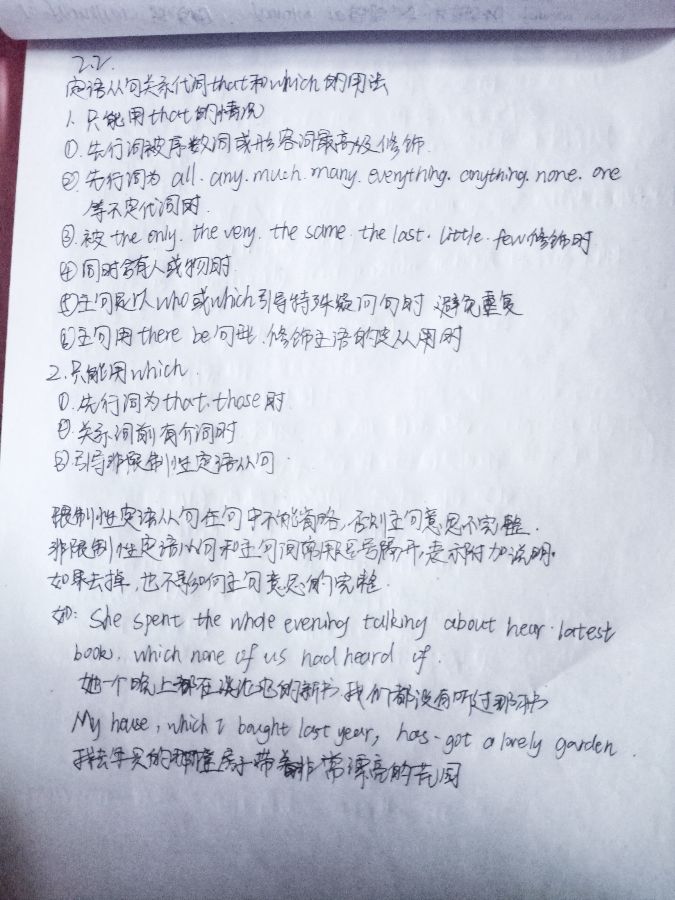 2.2.
定语从句关系代词that和which的用法
1. 只能用that的情况
①. 先行词被序数词或形容词最高级修饰.
②. 先行词为 all. any. much. many. everything. anything. none. one
等不定代词时.
③. 被 the only. the very. the same. the last. little. few修饰时
④ 同时含有人或物时.
⑤主句是以who或which引导特殊疑问句时 避免重复
⑥主句用there be句型. 修饰主语的定从用时
2. 只能用which.
①. 先行词为that. those时.
②. 关系词前有介词时
③引导非限制性定语从句.
限制性定语从句在句中不能省略, 否则主句意思不完整.
非限制性定语从句和主句间常用逗号隔开, 表示附加说明.
如果去掉, 也不影响主句意思的完整.
如: She spent the whole evening talking about hear. latest
book, which none of us had heard of.
她一个晚上都在谈论她的新书 我们都没有听过那书
My house, which I bought last year, has got a lovely garden.
我去年买的那幢房子带着非常漂亮的花园